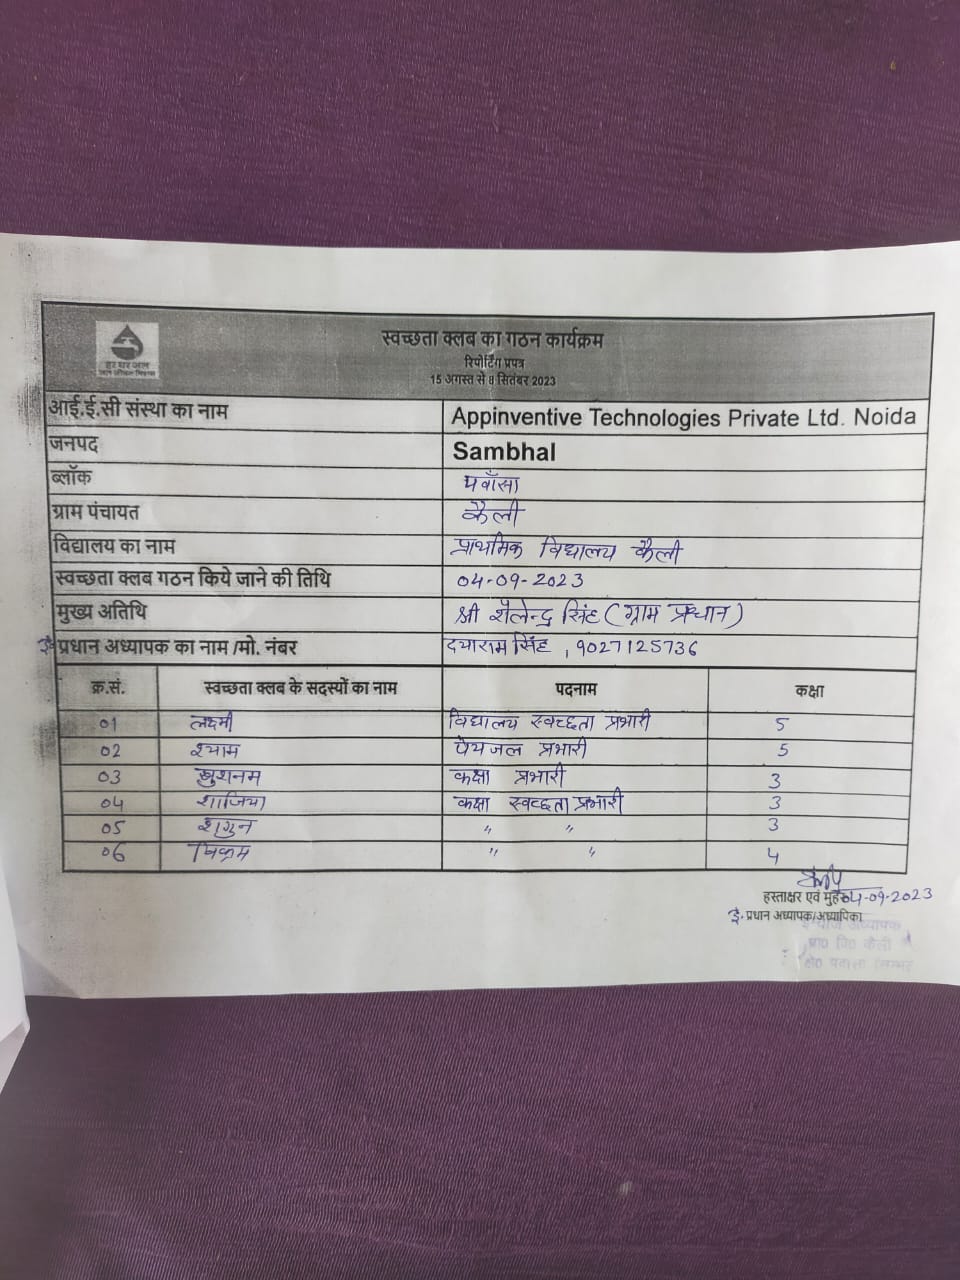 स्वच्छता क्लब का गठन कार्यक्रम
रिपोर्टिंग प्रपत्र
15 अगस्त से 8 सितंबर 2023
हर घर जल
आई.ई.सी संस्था का नाम Appinventive Technologies Private Ltd. Noida
जनपद Sambhal
ब्लॉक पवाँसा
ग्राम पंचायत कैली
विद्यालय का नाम प्राथमिक विद्यालय कैली
स्वच्छता क्लब गठन किये जाने की तिथि 04-09-2023
मुख्य अतिथि श्री शैलेन्द्र सिंह (ग्राम प्रधान)
इं० प्रधान अध्यापक का नाम /मो. नंबर दयाराम सिंह, 9027125736
क्र.सं. स्वच्छता क्लब के सदस्यों का नाम पदनाम कक्षा
01 लक्ष्मी विद्यालय स्वच्छता प्रभारी 5
02 श्याम पेयजल प्रभारी 5
03 खुशनम कक्षा प्रभारी 3
04 शाजिया कक्षा स्वच्छता प्रभारी 3
05 शगुन " " 3
06 विक्रम " " 4
हस्ताक्षर एवं मुहर 04-09-2023
इं० प्रधान अध्यापक/अध्यापिका
इन्चार्ज अध्यापक
प्रा० वि० कैली